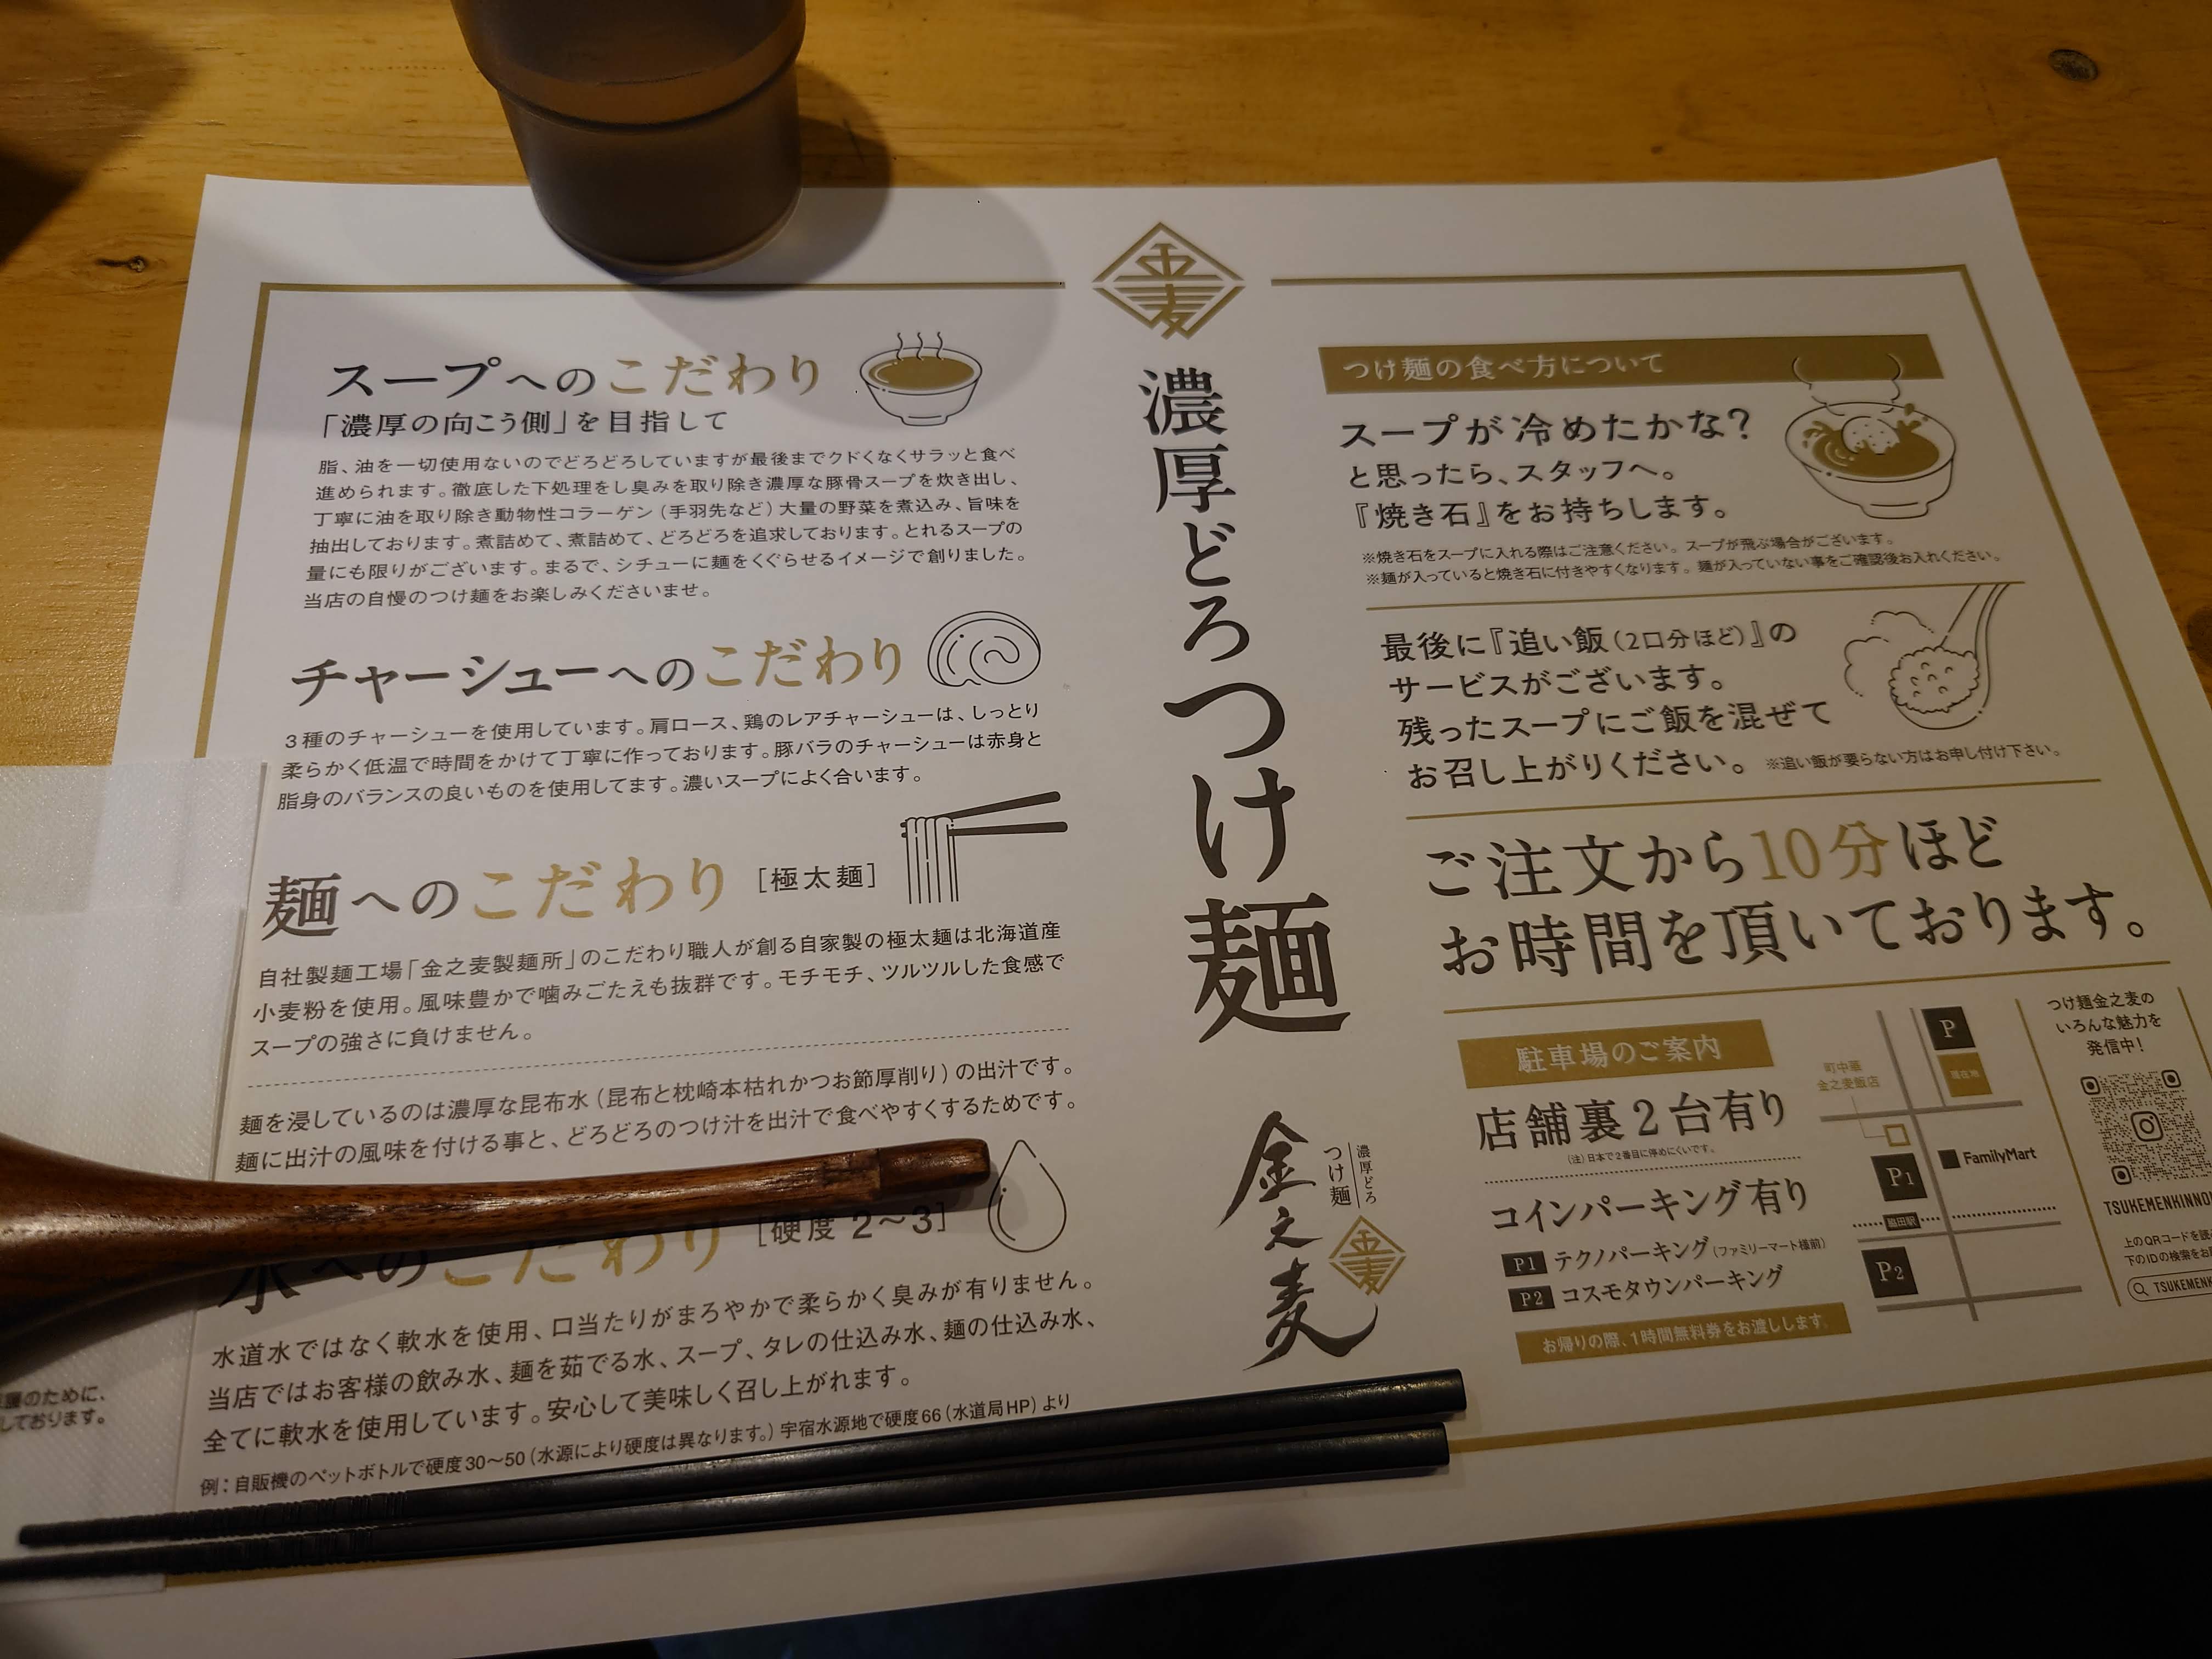 スープへのこだわり
「濃厚の向こう側」を目指して
脂、油を一切使用ないのでどろどろしていますが最後までクドくなくサラッと食べ
進められます。徹底した下処理をし臭みを取り除き濃厚な豚骨スープを炊き出し、
丁寧に油を取り除き動物性コラーゲン（手羽先など）大量の野菜を煮込み、旨味を
抽出しております。煮詰めて、煮詰めて、どろどろを追求しております。とれるスープの
量にも限りがございます。まるで、シチューに麺をくぐらせるイメージで創りました。
当店の自慢のつけ麺をお楽しみくださいませ。
チャーシューへのこだわり
3種のチャーシューを使用しています。肩ロース、鶏のレアチャーシューは、しっとり
柔らかく低温で時間をかけて丁寧に作っております。豚バラのチャーシューは赤身と
脂身のバランスの良いものを使用してます。濃いスープによく合います。
麺へのこだわり［極太麺］
自社製麺工場「金之麦製麺所」のこだわり職人が創る自家製の極太麺は北海道産
小麦粉を使用。風味豊かで噛みごたえも抜群です。モチモチ、ツルツルした食感で
スープの強さに負けません。
麺を浸しているのは濃厚な昆布水（昆布と枕崎本枯れかつお節厚削り）の出汁です。
麺に出汁の風味を付ける事と、どろどろのつけ汁を出汁で食べやすくするためです。
水へのこだわり［硬度 2〜3］
水道水ではなく軟水を使用、口当たりがまろやかで柔らかく臭みが有りません。
当店ではお客様の飲み水、麺を茹でる水、スープ、タレの仕込み水、麺の仕込み水、
全てに軟水を使用しています。安心して美味しく召し上がれます。
例：自販機のペットボトルで硬度30〜50（水源により硬度は異なります。）宇宿水源地で硬度66（水道局HP）より
のために、
しております。
金麦
濃厚どろつけ麺
濃厚どろ
つけ麺
金之麦
金麦
つけ麺の食べ方について
スープが冷めたかな？
と思ったら、スタッフへ。
『焼き石』をお持ちします。
※焼き石をスープに入れる際はご注意ください。スープが飛ぶ場合がございます。
※麺が入っていると焼き石に付きやすくなります。麺が入っていない事をご確認後お入れください。
最後に『追い飯（2口分ほど）』の
サービスがございます。
残ったスープにご飯を混ぜて
お召し上がりください。※追い飯が要らない方はお申し付け下さい。
ご注文から10分ほど
お時間を頂いております。
駐車場のご案内
店舗裏2台有り
（注）日本で2番目に停めにくいです。
コインパーキング有り
P1 テクノパーキング（ファミリーマート様前）
P2 コスモタウンパーキング
お帰りの際、1時間無料券をお渡しします。
P
現在地
町中華
金之麦飯店
P1
FamilyMart
脇田駅
P2
つけ麺金之麦の
いろんな魅力を
発信中！
TSUKEMENKINNO
上のQRコードを読
下のIDの検索をお
TSUKEMEN